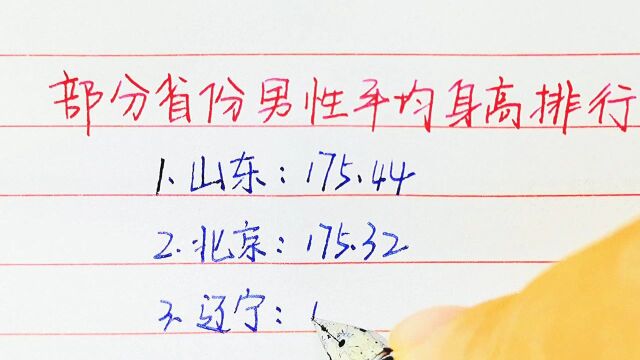 部分省份男性平均身高排行
1.山东：175.44
2.北京：175.32
3.辽宁：1